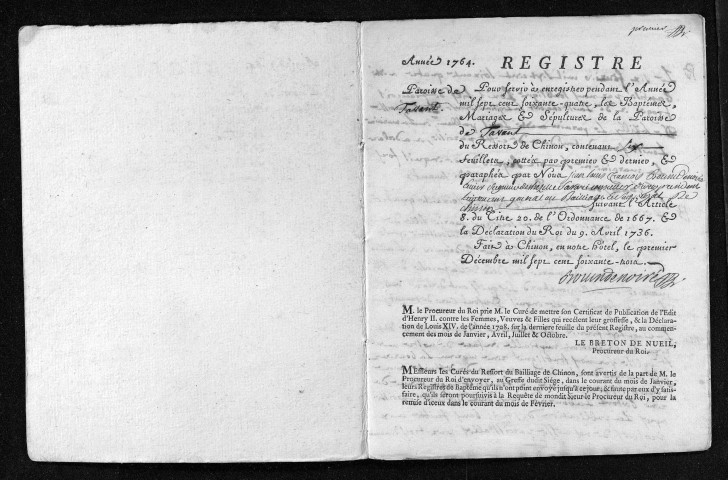 premier
Année 1764. REGISTRE
Paroisse de
Tavant
Pour servir à enregistrer pendant l'Année
mil sept cent soixante-quatre, les Baptemes,
Mariages & Sépultures de la Paroisse
de Tavant
du Ressort de Chinon, contenant six
feuillets, cottéx par premier et dernier, &
paraphéx par Nous Jean Louis François
Tavant conseiller du roy president
lieutenant general au Bailliage et siege
Chinon suivant l'Article
8. du Titre 20. de l'Ordonnance de 1667. &
la Déclaration du Roi du 9. Avril 1736.
Fait à Chinon, en notre hôtel, le premier
Décembre mil sept cent soixante-trois.
M. le Procureur du Roi prie M. le Curé de mettre son Certificat de Publication de l'Edit
d'Henry II. contre les Femmes, Veuves & Filles qui recélent leur grossesse, & la Déclara-
tion de Louis XIV. de l'année 1708. sur la derniere feuille du présent Registre, au commen-
cement des mois de Janvier, Avril, Juillet & Octobre.
LE BRETON DE NUEIL,
Procureur du Roi.
MEssieurs les Curés du Ressort du Bailliage de Chinon, sont avertis de la part de M. le
Procureur du Roi d'envoyer, au Greffe dudit Siége, dans le courant du mois de Janvier,
leurs Registres de Baptême qu'ils n'ont point envoyé jusqu'à ce jour; & faute par eux d'y satis-
faire, qu'ils seront poursuivis à la Requête de mondit Sieur le Procureur du Roi, pour la
remise d'iceux dans le courant du mois de Février.